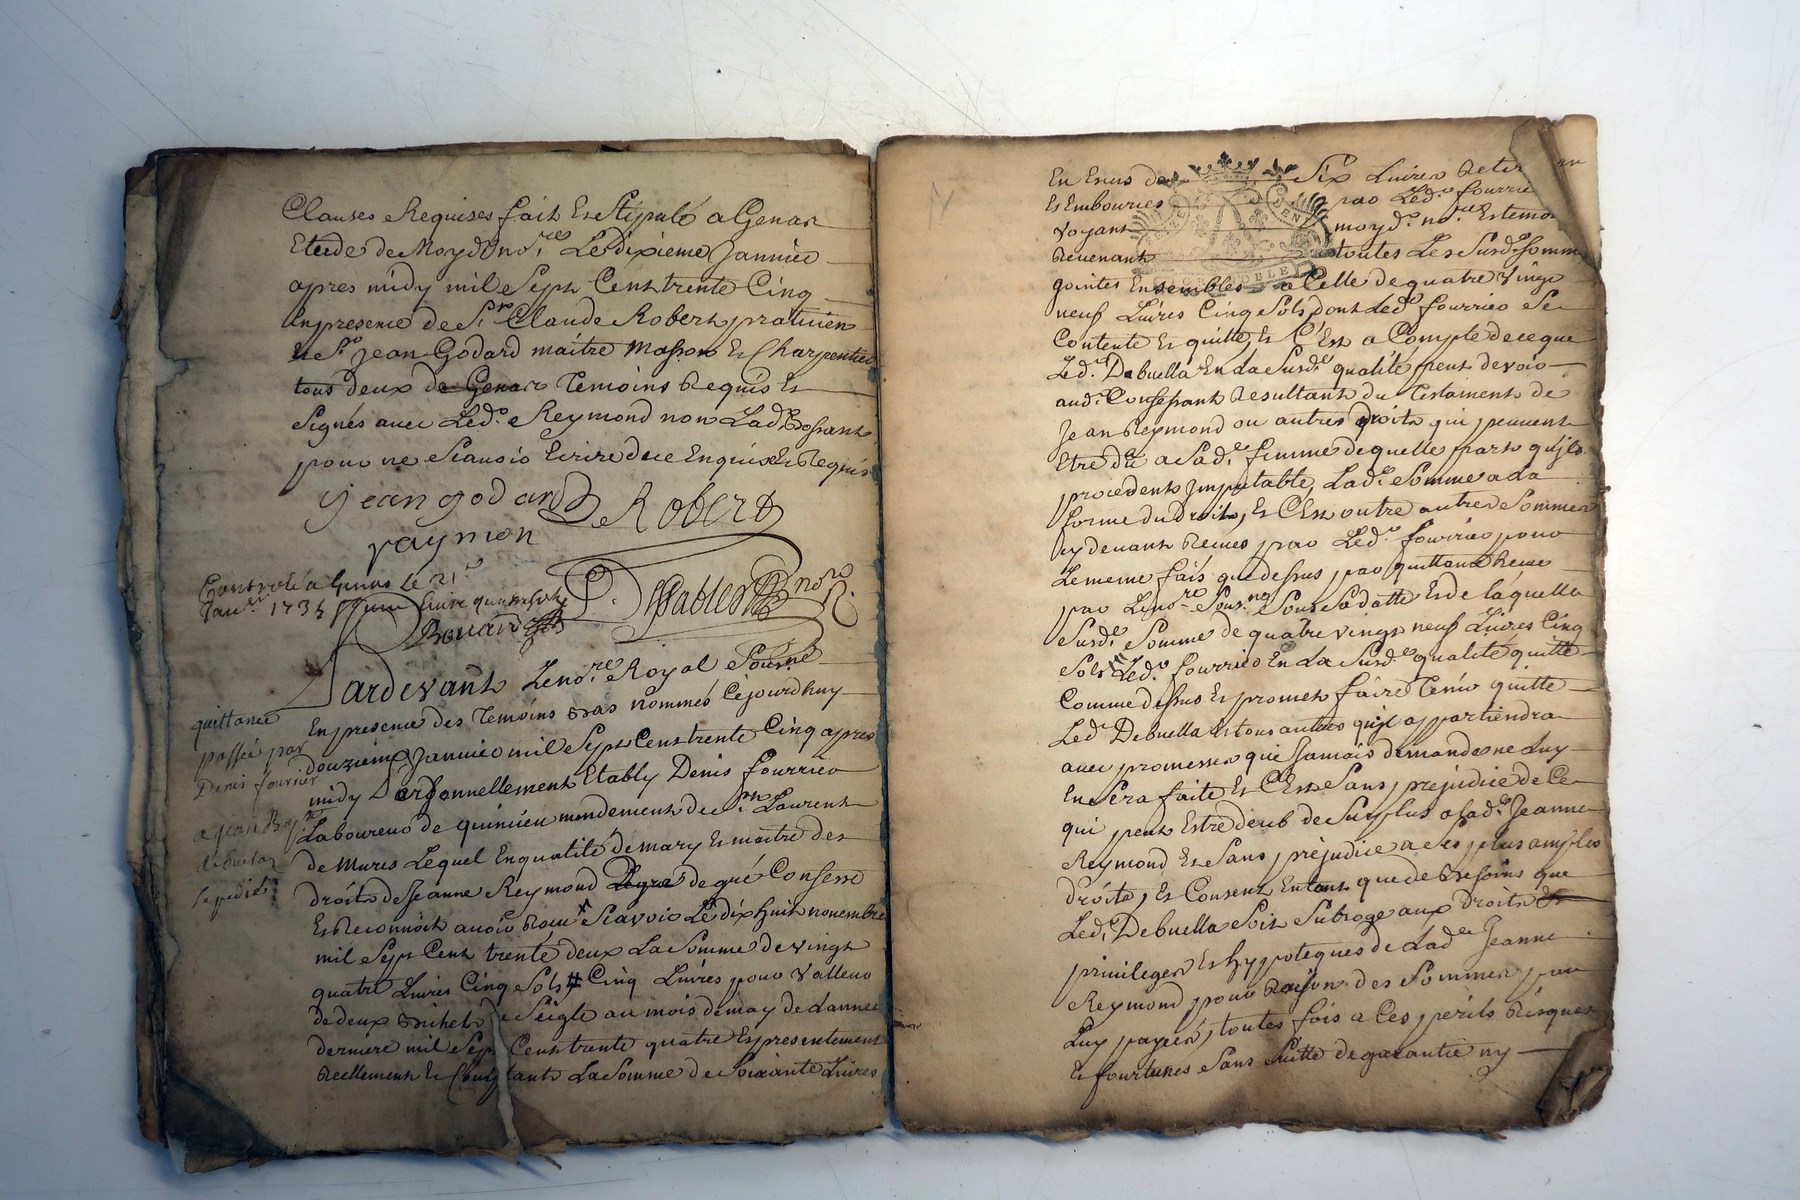 Clauses Requises fait et stipulé a Genas
Etude de Moyd. no.re Le dixieme Janvier
apres midy mil Sept Cent trente Cinq
En presence de S.r Claude Robert praticien
et S.r Jean Godard maitre Masson et Charpentier
tous deux de Genas Temoins Requis et
signés avec Led. Reymond non Lad.
pour ne Scavoir Ecrire de ce Enquise et Requise
jean godard Robert
raymon
Controllé a Genas le 21.e
Janv.er 1735
Pardevant Le no.re Royal Sousné
En presence des Temoins bas nommés Cejourdhuy
douzieme Janvier mil Sept Cent trente Cinq apres
midy Personnellement Etably Denis fourrier
Laboureur de mandement de S.t Laurent
de Mures Lequel En qualité de mary et maitre des
droits de Jeanne Reymond de gré Confesse
Et Reconnoit avoir Receu Scavoir Le dix huit novembre
mil Sept Cent trente deux La Somme de vingt
quatre Livres Cinq Sols # Cinq Livres pour Valleur
de deux bichets de Seigle au mois de may de Lannee
derniere mil Sept Cent trente quatre Et presentement
Reellement Et Comptant La Somme de Soixante Livres
quittance
passée par
Denis fourrier
a Jean Bap.te
debuella
expedié
En Ecus de Six Livres
Et Embources par Led. fourrier
voyant moyd. no.re Et temoins
Revenant toutes Les Susd.es Sommes
jointes Ensembles a Celle de quatre Vingt
neuf Livres Cinq Sols dont Led. fourrier Se
Contente Et quitte, Et C'Est a Compte de ce que
Led. Debuella En La Susd.e qualité peut devoir
aud. Confessant Resultant du Testament de
Jean Reymond ou autres droits qui peuvent
Etre dû a Sad.e femme de quelle part qu'ils
procedent Imputable, Lad.e Somme a La
forme du droit, Et C'Est outre autre Sommes
cy devant Receues par Led. fourrier pour
Le meme fait que dessus, par quittance Receue
par Le no.re Sous.né Sous Sa datte Et de Laquelle
Susd.e Somme de quatre vingt neuf Livres Cinq
Sols Led. fourrier En La Susd.e qualité quitte
Comme dessus Et promet faire Tenir quitte
Led. Debuella Et tous autres qu'il appartiendra
avec promesse que Jamais demande ne Luy
En Sera faite Et C'Est Sans prejudice de Ce
qui peut Estre deub de Surplus a Lad.e Jeanne
Reymond Et Sans prejudice a Ses plus amples
droits, Et Consent Entant que de Besoins que
Led. Debuella Soit Subroge aux droits
privileges Et hypoteques de Lad.e Jeanne
Reymond pour Raison des Sommes par
Luy payées, toutes fois a Ces perils Risques
Et fourtunes Sans Suitte de garantie ny